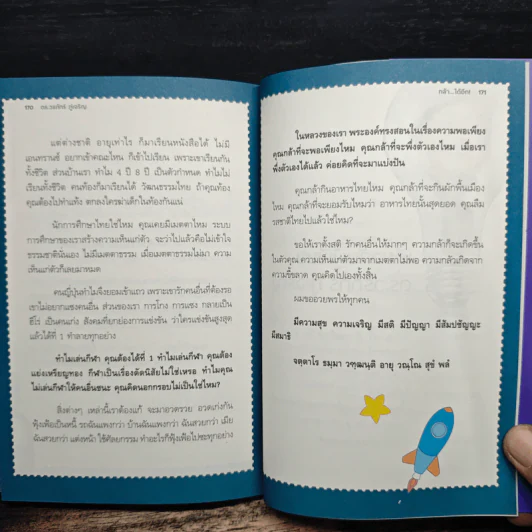 170 ดร.วรภัทร์ ภู่เจริญ
แต่ต่างชาติ อายุเท่าไร ก็มาเรียนหนังสือได้ ไม่มี
เอนทรานซ์ อยากเข้าคณะไหน ก็เข้าไปเรียน เพราะเขาเรียนกัน
ทั้งชีวิต ส่วนบ้านเรา ทำไม 4 ปี 8 ปี เป็นตัวกำหนด ทำไมไม่
เรียนทั้งชีวิต คนท้องก็มาเรียนได้ วัฒนธรรมไทย ถ้าคุณท้อง
คุณต้องไปทำแท้ง ตกลงใครฆ่าเด็กในท้องกันแน่
นักการศึกษาไทยใช่ไหม คุณเคยมีเมตตาไหม ระบบ
การศึกษาของเราสร้างความเห็นแก่ตัว จะว่าไปแล้วคือไม่เข้าใจ
ธรรมชาตินั่นเอง ไม่มีเมตตาธรรม เมื่อเมตตาธรรมไม่มา ความ
เห็นแก่ตัวก็เลยมาหมด
คนญี่ปุ่นทำไมจึงยอมเข้าแถว เพราะเขารักคนอื่นที่ต้องรอ
เขาไม่อยากแซงคนอื่น ส่วนของเรา การโกง การแซง กลายเป็น
ฮีโร่ เป็นคนเก่ง สังคมที่ยกย่องการแข่งขัน ว่าใครแข่งขันสูงสุด
แล้วได้ที่ 1 ทำลายทุกอย่าง
ทำไมเล่นกีฬา คุณต้องได้ที่ 1 ทำไมเล่นกีฬา คุณต้อง
แย่งเหรียญทอง กีฬาเป็นเรื่องดัดนิสัยไม่ใช่เหรอ ทำไมคุณ
ไม่เล่นกีฬาให้คนอื่นชนะ คุณคิดนอกกรอบไม่เป็นใช่ไหม?
สิ่งต่างๆ เหล่านี้เราต้องแก้ จะมาอวดรวย อวดเก่งกัน
ฟุ้งเฟ้อเป็นหนี้ รถฉันแพงกว่า บ้านฉันแพงกว่า ฉันสวยกว่า เมีย
ฉันสวยกว่า แต่งหน้า ใช้ศัลยกรรม ทำอะไรก็ฟุ้งเฟ้อไปซะทุกอย่าง
กล้า...ได้อีก! 171
ในหลวงของเรา พระองค์ทรงสอนในเรื่องความพอเพียง
คุณกล้าที่จะพอเพียงไหม คุณกล้าที่จะพึ่งตัวเองไหม เมื่อเรา
พึ่งตัวเองได้แล้ว ค่อยคิดที่จะมาแบ่งปัน
คุณกล้ากินอาหารไทยไหม คุณกล้าที่จะกินผักพื้นเมือง
ไหม คุณกล้าที่จะยอมรับไหมว่า อาหารไทยนั้นสุดยอด คุณลืม
รสชาติไทยไปแล้วใช่ไหม?
ขอให้เราตั้งสติ รักคนอื่นให้มากๆ ความกล้าก็จะเกิดขึ้น
ในตัวคุณ ความเห็นแก่ตัวมาจากเมตตาไม่พอ ความกลัวเกิดจาก
ความขี้ขลาด คุณคิดไปเองทั้งสิ้น
ผมขออวยพรให้ทุกคน
มีความสุข ความเจริญ มีสติ มีปัญญา มีสัมปชัญญะ
มีสมาธิ
จตฺตาโร ธมฺมา วฑฺฒนฺติ อายุ วณฺโณ สุขํ พลํ